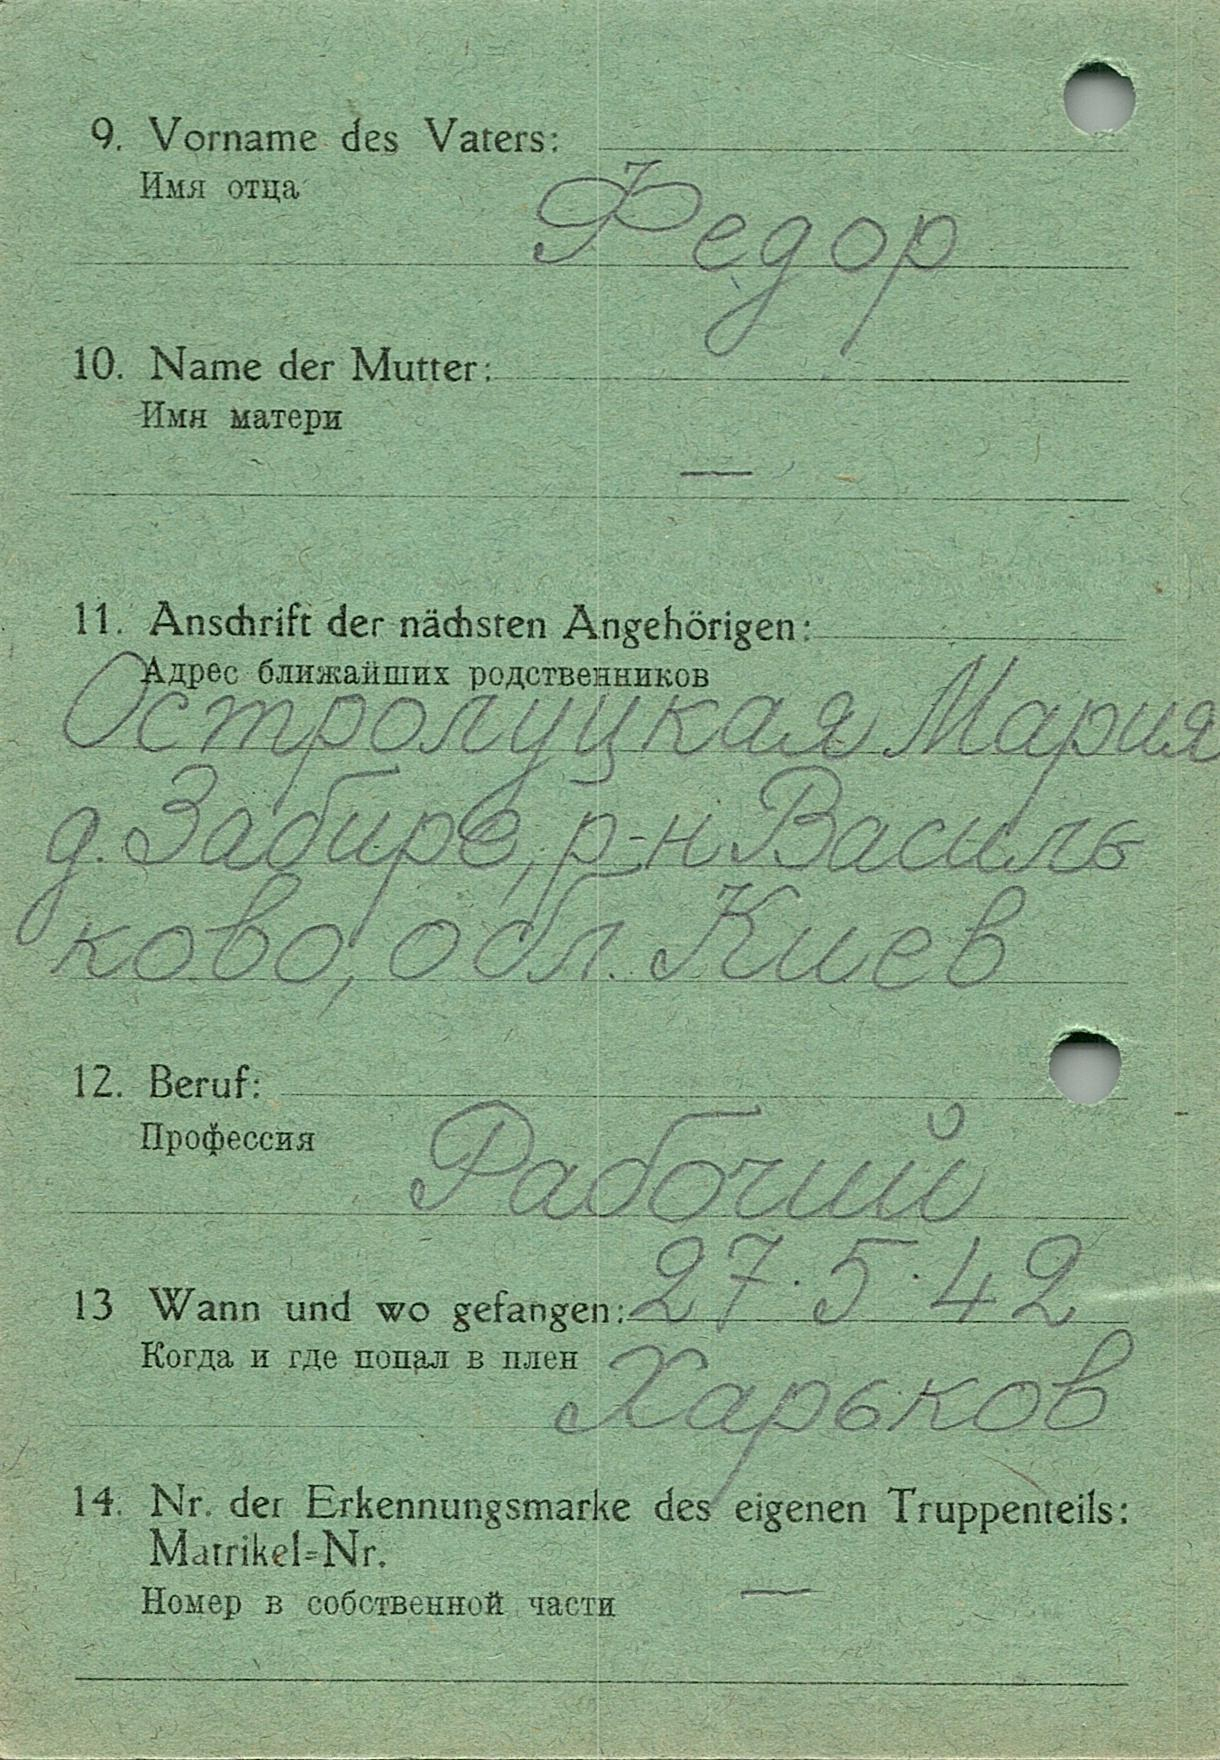 9. Vorname des Vaters:
Имя отца
Федор
10. Name der Mutter:
Имя матери
—
11. Anschrift der nächsten Angehörigen:
Адрес ближайших родственников
Остролуцкая Мария
д. Забире, р-н Василь
ково, обл. Киев
12. Beruf:
Профессия
Рабочий
27·5·42
13 Wann und wo gefangen:
Когда и где попал в плен
Харьков
14. Nr. der Erkennungsmarke des eigenen Truppenteils:
Matrikel=Nr.
Номер в собственной части
—